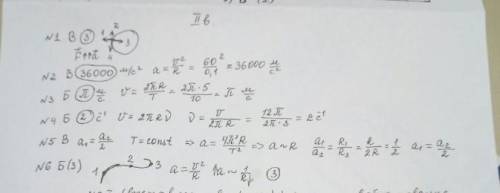 II в
№1 В ③
1 2 3 4
F↑↑a
№2 В 36000 м/с² a = υ²/R = 60²/0,1 = 36000 м/с²
№3 Б π м/с υ = 2πR/T = 2π·5/10 = π м/с
№4 Б ② c⁻¹ υ = 2πRν ν = υ/2πR = 12π/2π·3 = 2 c⁻¹
№5 В a₁ = a₂/2 T = const ⇒ a = 4π²R/T² ⇒ a ~ R a₁/a₂ = R₁/R₂ = R/2R = 1/2 a₁ = a₂/2
№6 Б (3) 1 2 3 a = υ²/R ↑a ~ 1/R↓ ③